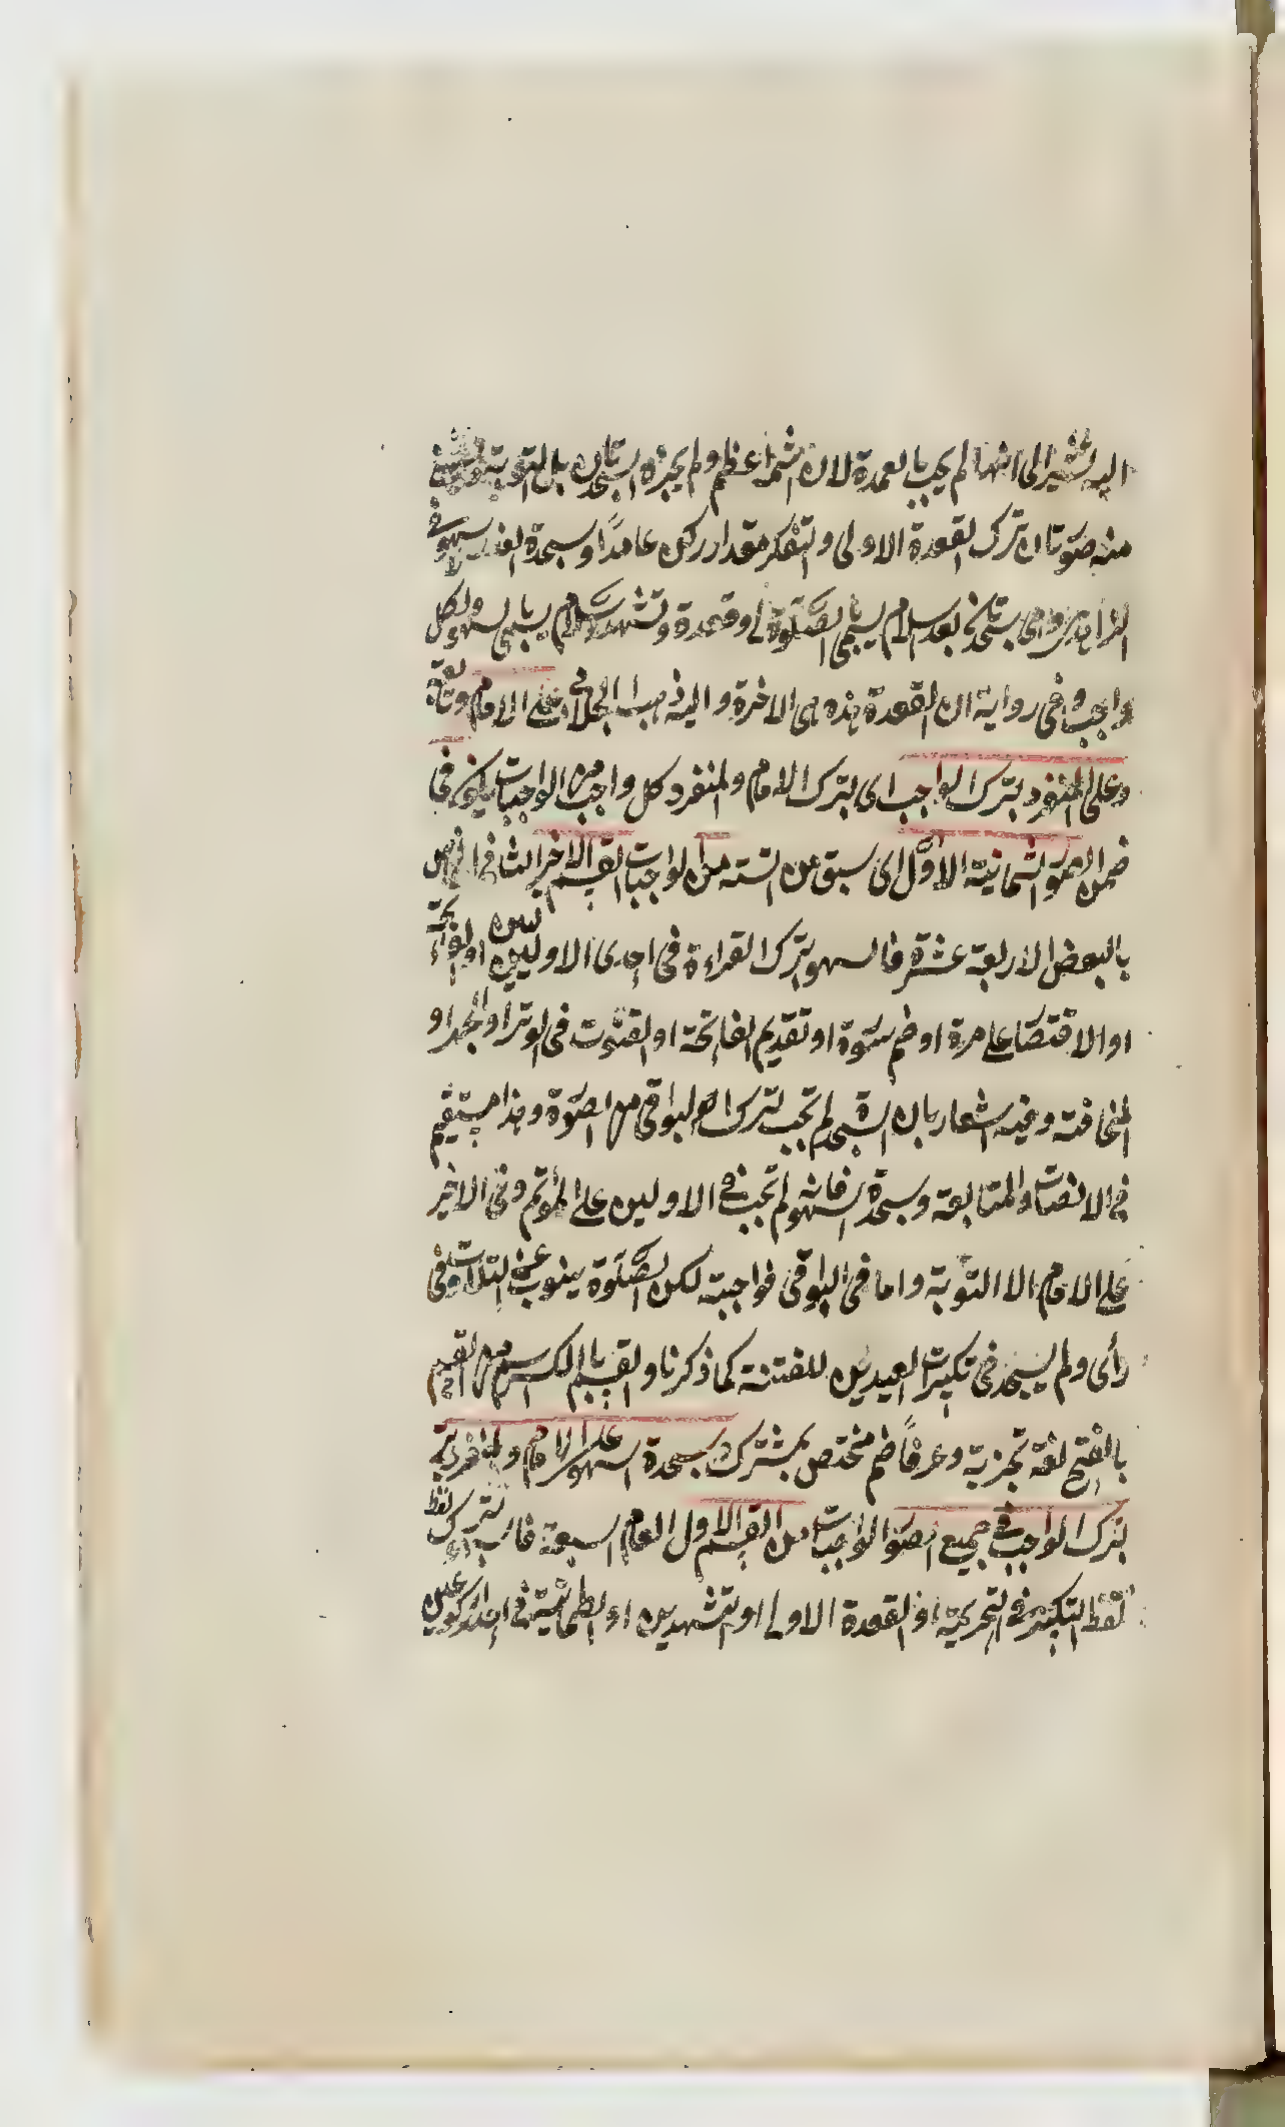 اليه يشير الى انها لم يجب بالعمدة لان اثمها اعظم ولم يجزه السجدتان بل التوبة
منه صورتان ترك القعدة الاولى والتفكر مقدار ركن عامدا وسجدة العذر لا سهو في
بعد سلام يسمى الصلوة او قعدة وتشهد وسلام يسمى السهو لكل
واجب وفي رواية ان القعدة هذه هي الاخرة واليه ذهب الجلابي على الامام
وعلى المنفرد بترك الواجب اى بترك الامام والمنفرد كل واجب من الواجبات يكون في
ضمن الصور الثمانية الاول اى سبق من الستة من الواجبات القسم الاخير الثاني
بالبعض الاربعة عشرة فالسهو بترك القراءة في احدى الاوليين او الفاتحة
او الاقتصار على مرة او ضم سورة او تقديم الفاتحة او القنوت في الوتر او الجهر او
المخافتة وفيه اشعار بان السجدة لم تجب لترك البواقي من الصورة وهذا مستقيم
في الانصات والمتابعة وسجدة السهو فانه لم تجب في الاوليين على المؤتم وفي الاخير
على الامام الا التوبة واما في البواقي فواجبة لكن الصلوة ينوب عن التلاوت في
رأى ولم يسجد في تكبيرات العيدين للفتنة كما ذكرنا والقسم بالكسر من القسم
بالفتح لغة تجزية وعرفا ضم مختص بمشترك سجدة السهو على الامام والمنفرد
بترك الواجب في جميع الصور الواجبات من القسم الاول العام السبعة فان بترك لفظ
لفظ التكبير في التحريمة او القعدة الاولى او التشهدين او الطمانينة في